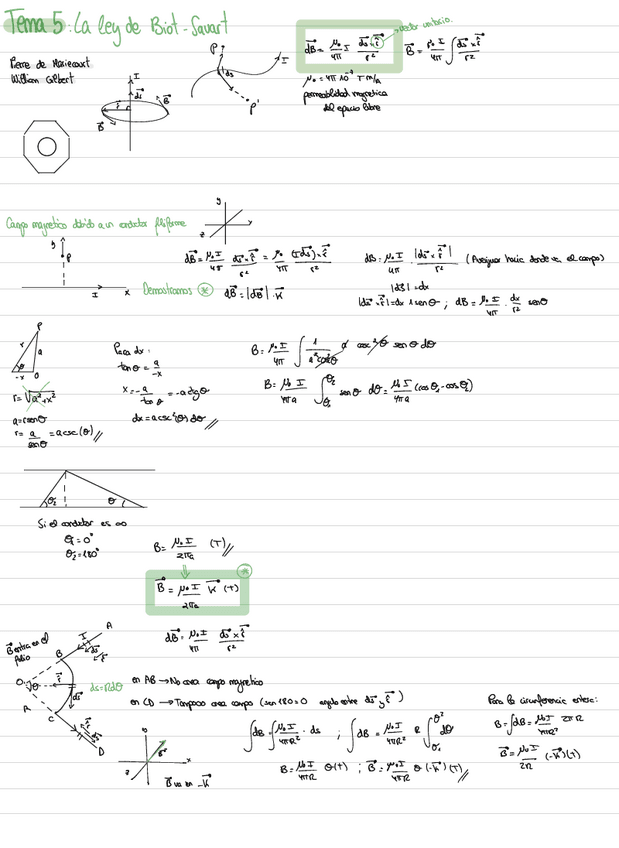 Tema 5: La ley de Biot-Savart
Pierre de Maricourt
William Gilbert
I
ds
r
B
B
P
ds
I
P'
dB = μ₀/4π I ds×r̂/r²
vector unitario.
B = μ₀ I/4π ∫ ds×r̂/r²
μ₀ = 4π 10⁻⁷ T m/A
permeabilidad magnetica
del espacio libre
Campo magnetico debido a un conductor filiforme
y
z
x
y
P
I
x
Demostramos *
dB = μ₀ I/4π ds×r̂/r² = μ₀/4π (I ds)×r̂/r²
dB = |dB|·k
dB = μ₀ I/4π · |ds×r̂|/r² (Averiguar hacia donde va el campo)
|ds| = dx
|ds×r̂| = dx 1 sen θ ; dB = μ₀ I/4π · dx/r² sen θ
P
r
a
θ
-x
O
r = √a²+x²
a = r sen θ
r = a/sen θ = a csc (θ) //
Para dx:
tan θ = a/-x
x = -a/tan θ = -a ctg θ
dx = a csc²(θ) dθ //
B = μ₀ I/4π ∫ 1/a² csc²θ a csc²θ sen θ dθ
B = μ₀ I/4πa ∫θ₁^θ₂ sen θ dθ = μ₀ I/4πa (cos θ₁ - cos θ₂)
θ₂
θ
Si el conductor es ∞
θ₁ = 0°
θ₂ = 180°
B = μ₀ I/2πa (T) //
*
B = μ₀ I/2πa k (T)
dB = μ₀ I/4π ds×r̂/r²
B entra en el
folio
A
I
ds
r̂
B
O
θ
r̂
ds
ds = R dθ
R
C
r̂
ds
D
en AB → No crea campo magnetico
en CD → Tampoco crea campo (sen 180 = 0 angulo entre ds y r̂)
x
z
B va en -k
∫dB = ∫ μ₀ I/4πR² · ds ; ∫dB = μ₀ I/4πR² R ∫θ₁^θ² dθ
B = μ₀ I/4πR θ (T) ; B = μ₀ I/4πR θ (-k) (T) //
Para la circunferencia entera:
B = ∫dB = μ₀ I/4πR² 2πR
B = μ₀ I/2R (-k) (T)